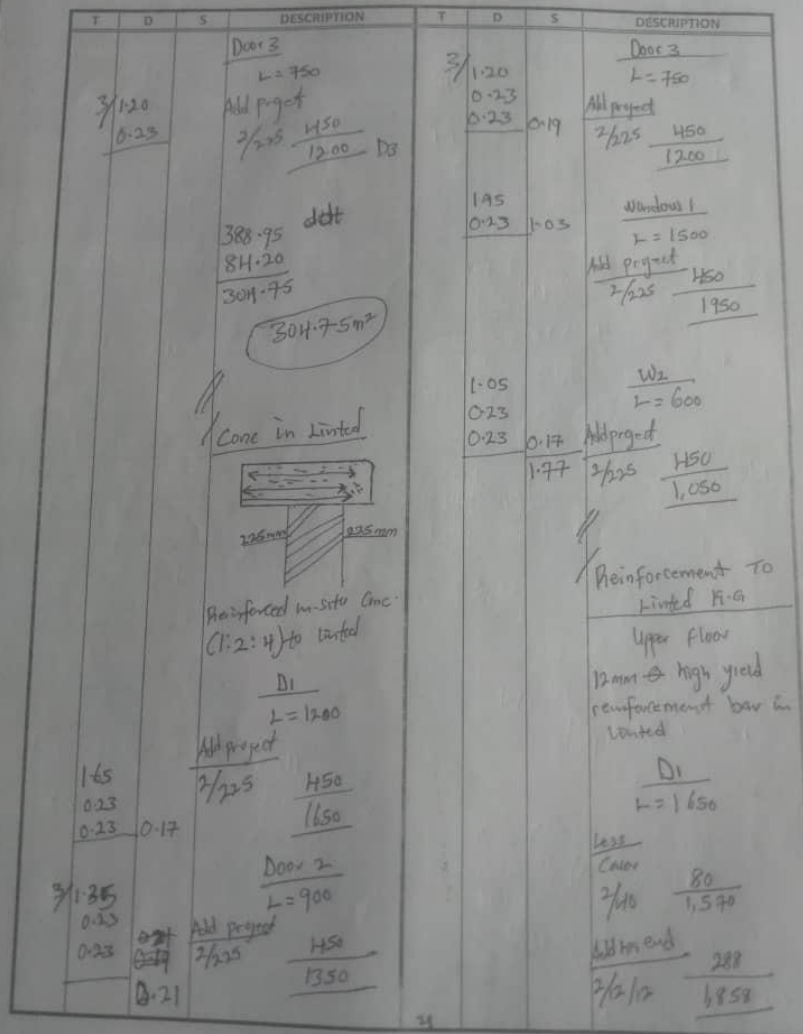 T D S DESCRIPTION
Door 3
L = 750
3/1.20 Add project
0.23 2/225 450
1200 D3
ddt
388.95
84.20
304.75
304.75m²
Conc in Linted
225mm 225mm
Reinforced in-situ Conc.
(1:2:4) to linted
D1
L = 1200
Add project
1.65 2/225 450
0.23 1650
0.23 0.17
Door 2
3/1.35 L = 900
0.23 Add project
0.23 2/225 450
0.21 1350
T D S DESCRIPTION
Door 3
3/1.20 L = 750
0.23 Add project
0.23 0.19 2/225 450
1200
1.95 Window 1
0.23 1.03 L = 1500
Add project
2/225 450
1950
1.05 W2
0.23 L = 600
0.23 0.17 Add project
1.77 2/225 450
1,050
Reinforcement To
Linted
Upper Floor
12mm ⌀ high yield
reinforcement bar in
Linted
D1
L = 1650
Less
Cover
2/40 80
1,570
Add end 288
2/12/12 1,858
21